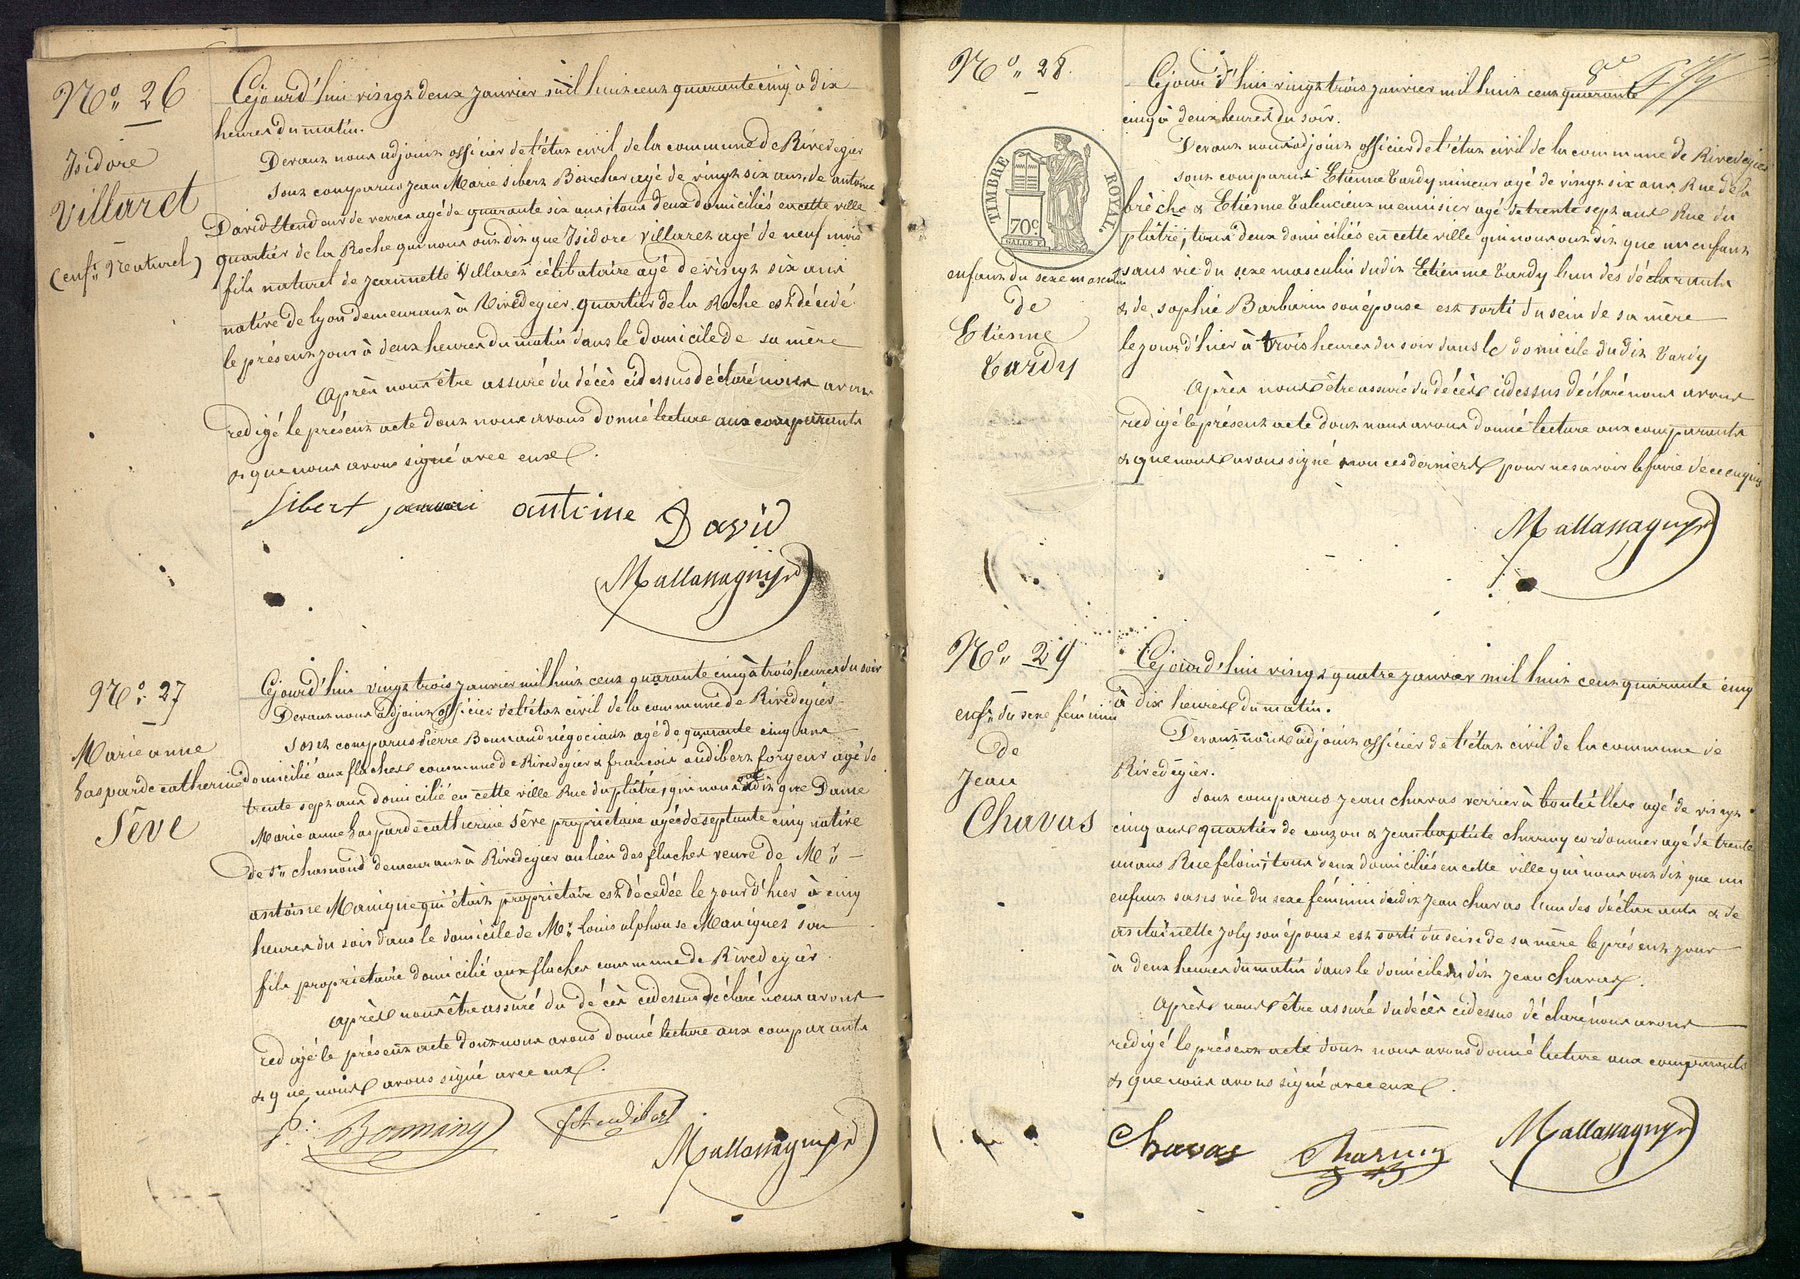 No. 26
Isidore
Villaret
(enft. Naturel)
Cejourd'hui vingt deux janvier mil huit cent quarante cinq à dix
heures du matin.
Devant nous adjoint officier de l'état civil de la commune de Rivedegier
sont comparus Jean Marie Sibert Boucher agé de vingt six ans & antoine
David étendeur de verres agé de quarante six ans, tous deux domiciliés en cette ville
quartier de la Roche qui nous ont dit que Isidore Villaret agé de neuf mois
fils naturel de jeannette Villaret célibataire agé de vingt six ans
native de lyon demeurant à Rivedegier quartier de la Roche est décédé
le présent jour à deux heures du matin dans le domicile de sa mère
Après nous être assuré du décès cidessus déclaré nous avons
redigé le présent acte dont nous avons donné lecture aux comparants
& que nous avons signé avec eux.
Sibert antoine David
Mallassagny
No. 27
Marie anne
gasparde catherine
Séve
Cejourd'hui vingt trois janvier mil huit cent quarante cinq à trois heures du soir
Devant nous adjoint officier de l'état civil de la commune de Rivedegier
sont comparus Pierre Bonnand négociant agé de quarante cinq ans
domicilié aux flaches commune de Rivedegier & francois audibert forgeur agé de
trente sept ans domicilié en cette ville Rue du plâtre, qui nous ont dit que Dame
Marie anne gasparde catherine Séve propriétaire agée de septante cinq native
de St. chamond demeurant à Rivedegier au lieu des flaches veuve de Mr.
antoine Manique qui était propriétaire est décedée le jour d'hier à cinq
heures du soir dans le domicile de Mr. Louis alphonse Maniquet son
fils propriétaire domicilié aux flaches commune de Rivedegier.
après nous être assuré du décès cidessus déclaré nous avons
redigé le présent acte dont nous avons donné lecture aux comparants
& que nous avons signé avec eux.
P. fs audibert
Mallassagny
No. 28.
8e
TIMBRE ROYAL.
70c.
enfant du sexe masculin
de
Etienne
Tardy
Cejourd'hui vingt trois janvier mil huit cent quarante
cinq à deux heures du soir.
Devant nous adjoint officier de l'état civil de la commune de Rivedegier
sont comparus Etienne Tardy mineur agé de vingt six ans Rue de la
brèche & Etienne Valencieux menuisier agé de trente sept ans Rue du
plâtre, tous deux domiciliés en cette ville qui nous ont dit que un enfant
sans vie du sexe masculin dudit Etienne Tardy l'un des déclarants
& de sophie Barbarin son épouse est sorti du sein de sa mère
le jour d'hier à trois heures du soir dans le domicile dudit Tardy
Après nous être assuré du décès cidessus déclaré nous avons
redigé le présent acte dont nous avons donné lecture aux comparants
& que nous avons signé non ces derniers pour ne savoir le faire de ce enquis
Mallassagny
No. 29
enft. du sexe féminin
de
Jean
Chavas
Cejourd'hui vingt quatre janvier mil huit cent quarante cinq
à dix heures du matin.
Devant nous adjoint officier de l'état civil de la commune de
Rivedegier.
sont comparus jean chavas verrier à bouteilles agé de vingt
cinq ans quartier de couzon & jean baptiste charmy cordonnier agé de trente
un ans Rue feloin, tous deux domiciliés en cette ville qui nous ont dit que un
enfant sans vie du sexe féminin dudit jean chavas l'un des déclarants & de
antoinette joly son épouse est sorti du sein de sa mère le présent jour
à deux heures du matin dans le domicile dudit jean chavas.
Après nous être assuré du décès cidessus déclaré nous avons
redigé le présent acte dont nous avons donné lecture aux comparants
& que nous avons signé avec eux.
Chavas Charmy Mallassagny